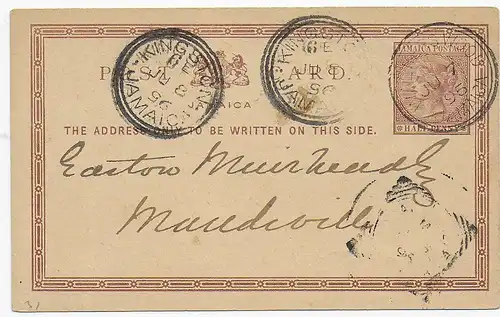 KINGSTON JAMAICA JU 8 96
KINGSTON JAMAICA JU 96
JAMAICA POSTAGE
POST CARD.
JAMAICA
HALF PENNY
THE ADDRESS ONLY TO BE WRITTEN ON THIS SIDE.
Easton Muirhead Esq
Mandeville